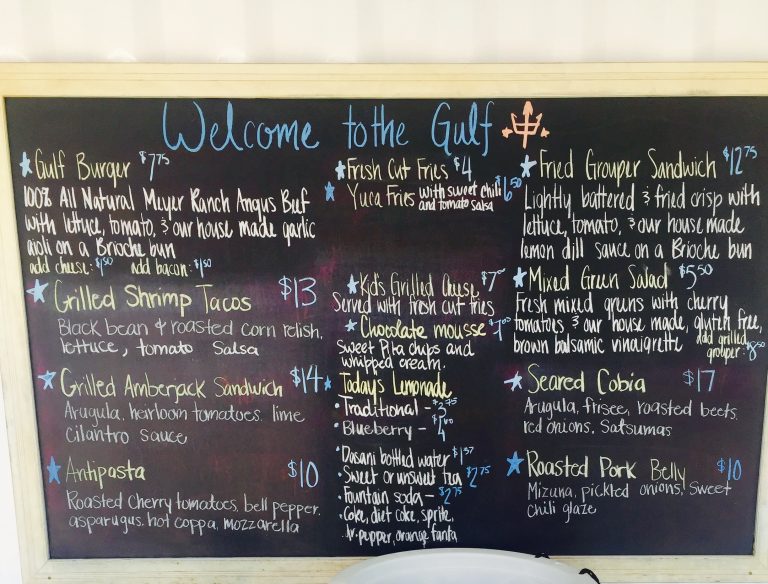 Welcome to the Gulf
Gulf Burger $7.75
100% All Natural Meyer Ranch Angus Beef
with lettuce, tomato, & our house made garlic
aioli on a Brioche bun
add cheese: $1.50 add bacon: $1.50
Grilled Shrimp Tacos $13
Black bean & roasted corn relish,
lettuce, tomato salsa
Grilled Amberjack Sandwich $14
Arugula, heirloom tomatoes, lime
cilantro sauce
Antipasta $10
Roasted cherry tomatoes, bell pepper,
asparugus, hot coppa, mozzarella
Fresh Cut Fries $4
Yuca Fries with sweet chili $6.50
and tomato salsa
Kid's Grilled Cheese $7
Served with fresh cut fries
Chocolate mousse
Sweet Pita chips and
whipped cream.
Today's Lemonade
• Traditional - $3.75
• Blueberry -
• Dasani bottled water $1.37
• Sweet or unsweet tea $2.75
• Fountain soda - $2.75
Coke, diet coke, sprite,
dr. pepper, orange fanta
Fried Grouper Sandwich $12.75
Lightly battered & fried crisp with
lettuce, tomato, & our house made
lemon dill sauce on a Brioche bun
Mixed Green Salad $5.50
Fresh mixed greens with cherry
tomatoes & our house made, gluten free,
brown balsamic vinaigrette add grilled
grouper - $8.50
Seared Cobia $17
Arugula, frisee, roasted beets,
red onions, Satsumas
Roasted Pork Belly $10
Mizuna, pickled onions, Sweet
chili glaze